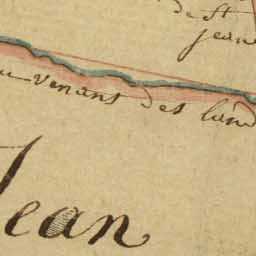 de St
Jean
venans des land
Jean